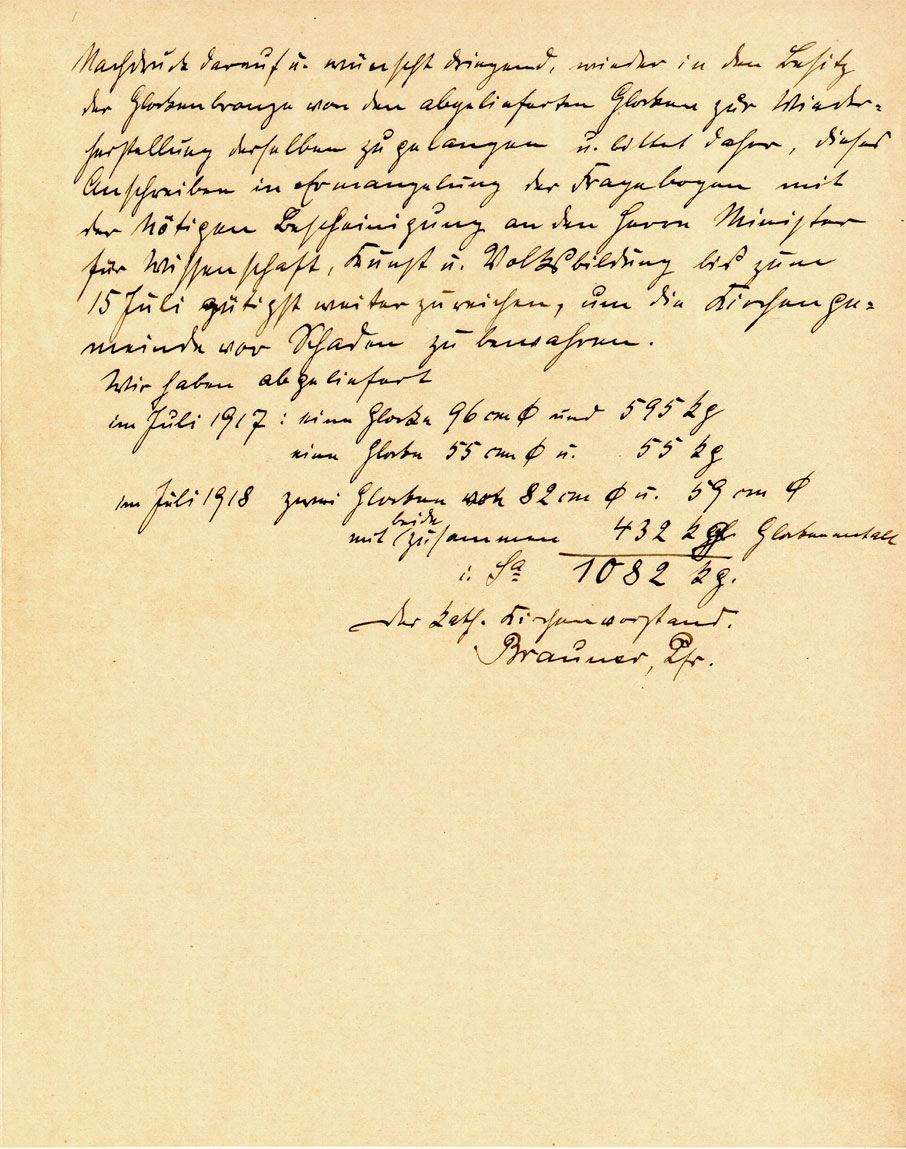 Nachdruck darauf u. wünscht dringend, wieder in den Besitz
der Glockenbronze von den abgelieferten Glocken zur Wieder=
herstellung derselben zu gelangen u. bittet daher, dieses
Anschreiben in Ermangelung der Fragebogen mit
der nötigen Bescheinigung an den Herrn Minister
für Wissenschaft, Kunst u. Volksbildung bis zum
15 Juli gütigst weiterzureichen, um die Kirchenge=
meinde vor Schaden zu bewahren.
Wir haben abgeliefert
im Juli 1917 : eine Glocke 96 cm Ø und 595 kg
eine Glocke 55 cm Ø u. 55 kg
im Juli 1918 zwei Glocken von 82 cm Ø u. 59 cm Ø
beide
mit zusammen 432 kg Glockenmetall
i. Sa 1082 kg.
Der kath. Kirchenvorstand.
Brauner, Pfr.